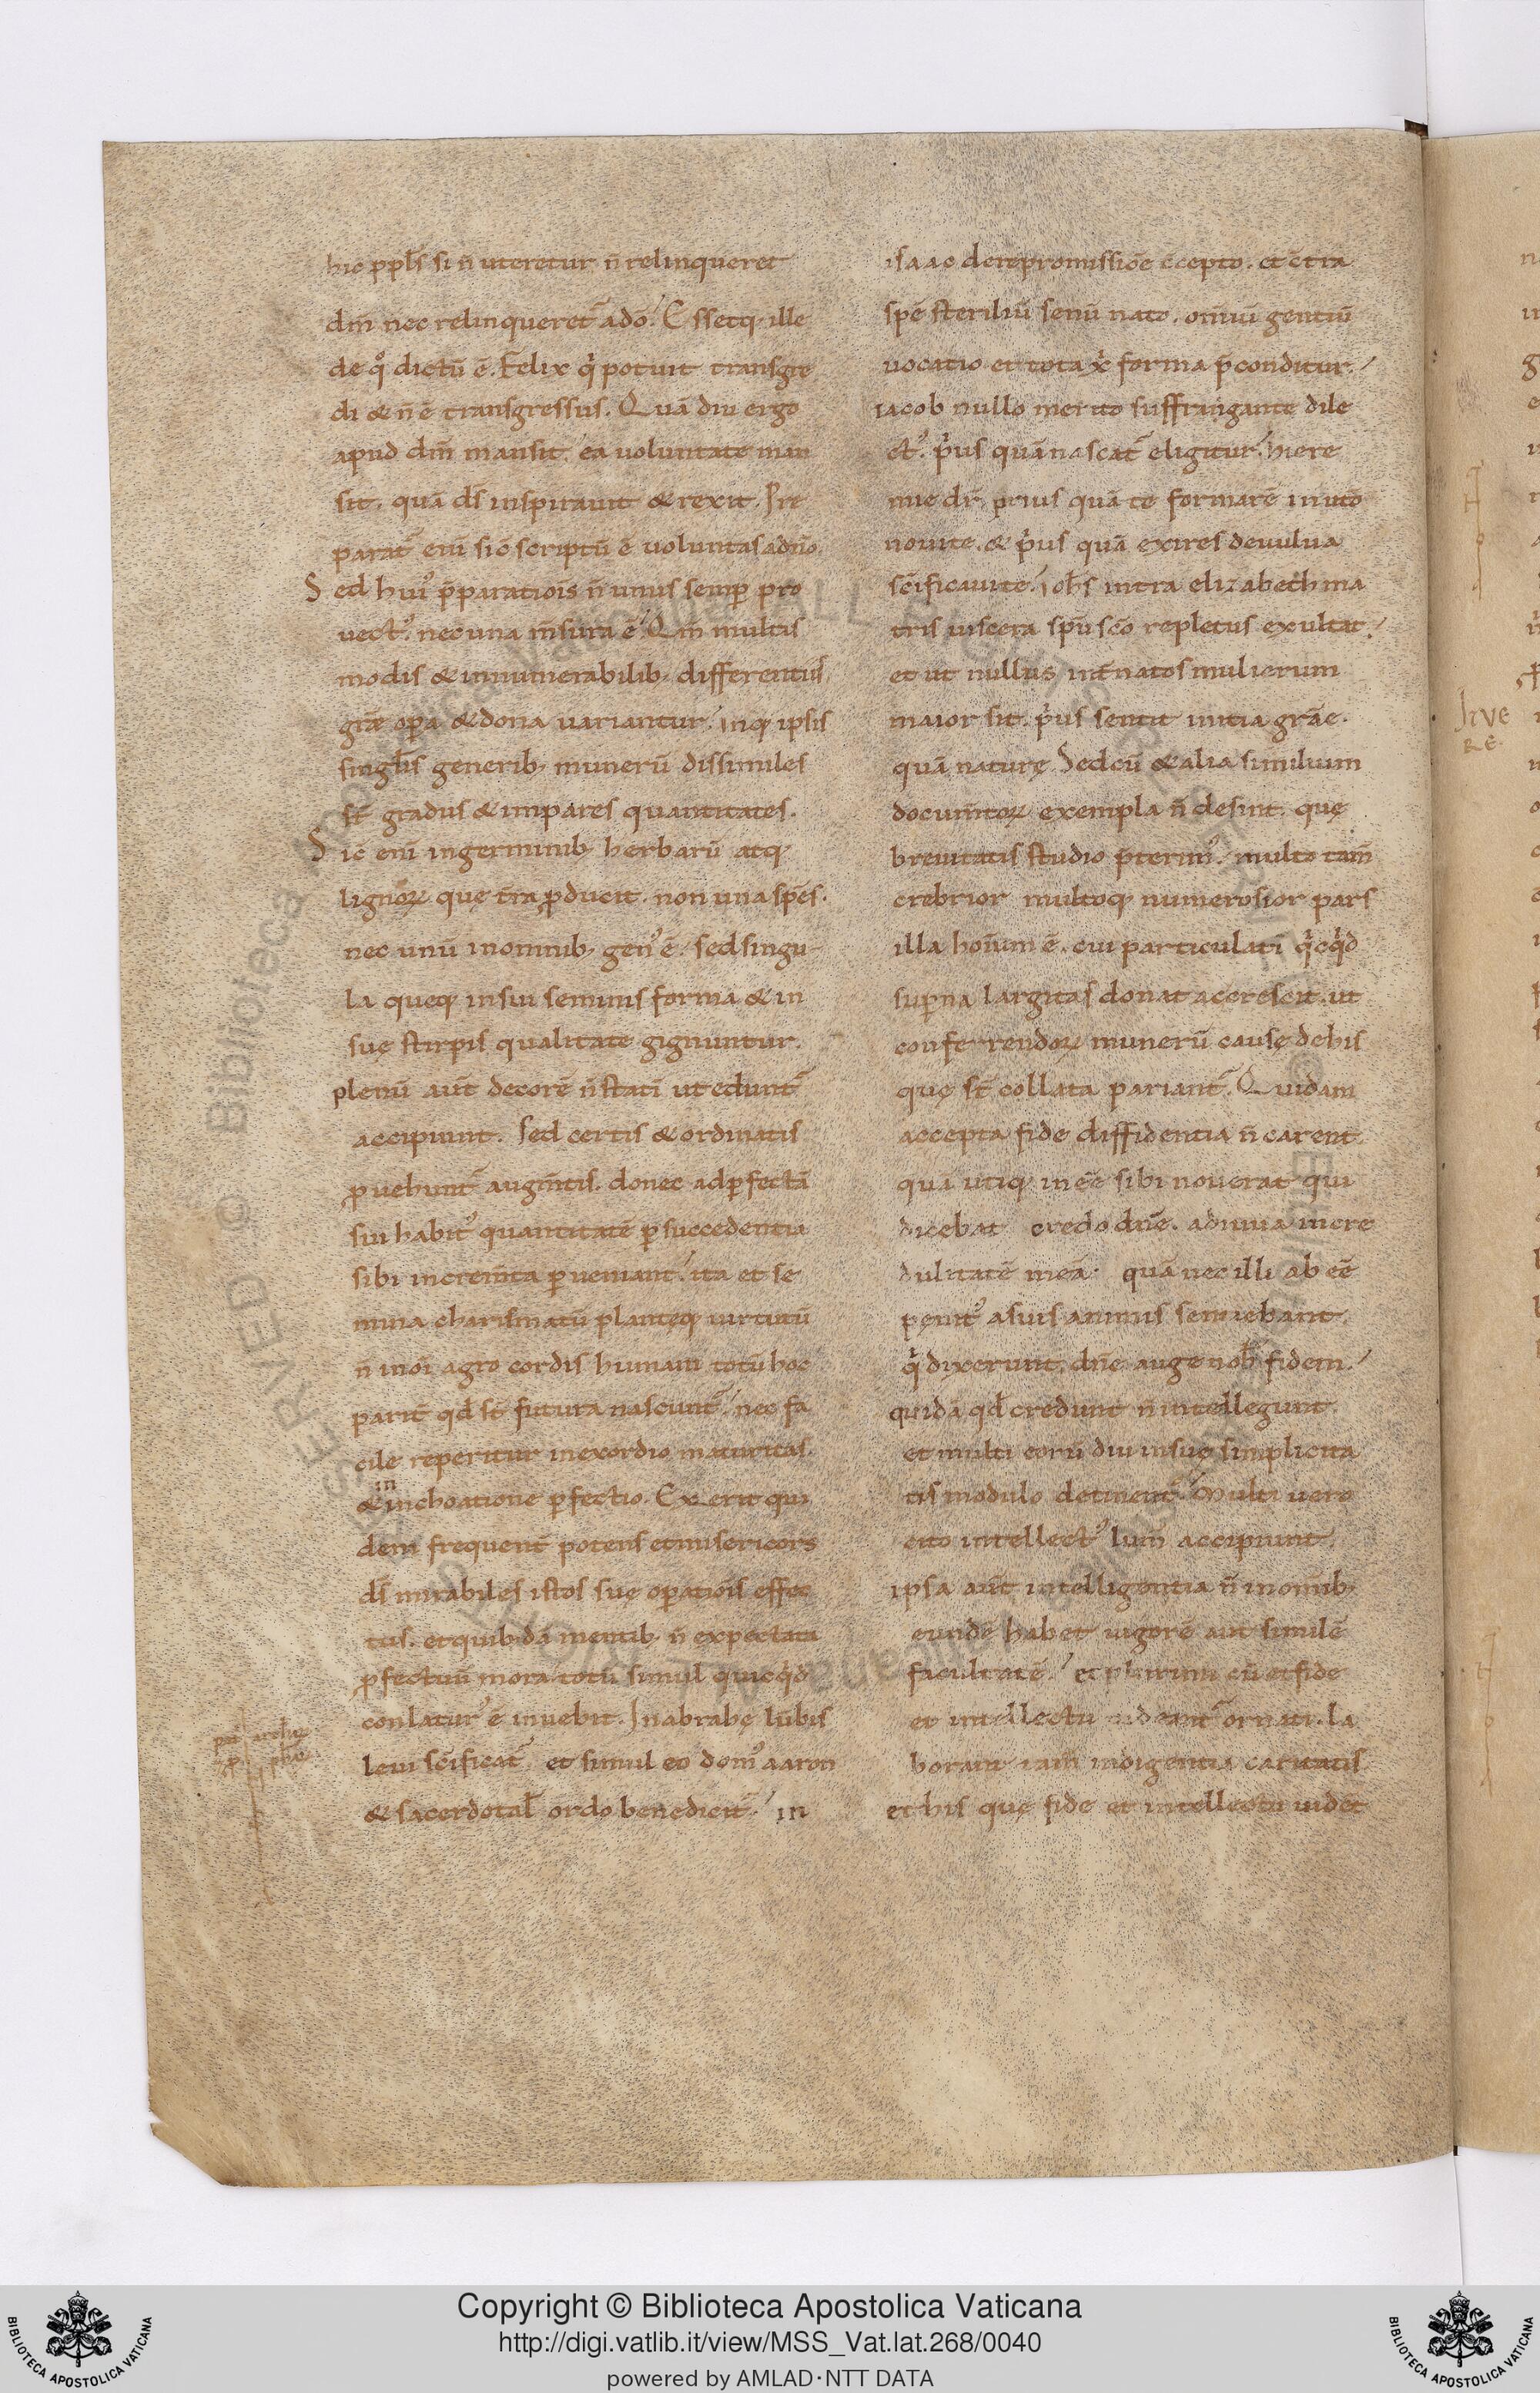 hic ppl̄s si n̄ uteretur n̄ relinqueret
dm̄ nec relinqueret᷑ a dō. Essetq; ille
de qͦ dictū ē. Felix qi potuit transgre
di & n̄ ē transgressus. Quā diu ergo
apud dm̄ mansit. ea uoluntate man
sit. quā ds̄ inspirauit & rexit. Pre
parat᷑ eni sic̄ scriptū ē uoluntas a dn̄o
Sed hui᷒ p̄paratiōis n̄ unus semp̄ pro
uect᷒. nec una m̄sura ē. Qm̄ multis
modis & innumerabilib; differentiis
grē opa & dona uariantur. inq; ipsis
singlīs generib; munerū dissimiles
st̄ gradus & impares quantitates.
Sic eni in germinib; herbarū atq;
lignoꝝ quę t̄ra ꝓducit. non una spēs.
nec unū in omnib; gen᷒ ē. sed singu
la queq; in sui seminis forma & in
suę stirpis qualitate gignuntur.
plenū aut̄ decorē n̄ statī ut edunt᷑
accipiunt. Sed certis & ordinatis
ꝓuehunt᷑ augm̄tis. donec ad ꝑfectā
sui habit᷒ quantitatē ꝑ succedentia
sibi increm̄ta ꝑueniant. ita et se
mina charismatū plantęq; uirtutū
n̄ in oī agro cordis humani totū hoc
parit᷑ qd̄ st̄ futura nascunt᷑. nec fa
cile reperitur in exordio maturitas.
& in inchoatione ꝑfectio. Exerit qui
dem frequent᷑ potens et misericors
ds̄ mirabiles istos suę oꝑatiōis effec
tus. et quib;dā mentib; n̄ expectata
ꝓfectuū mora. totū simul quicqid
conlatur᷒ ē inuehit. In abrahę lūbis
leui scīficat᷑. et simul eo dom᷒ aaron
& sacerdotal̄ ordo benedicit᷑. in
isaac de repromissiōe c̄cepto. et c̄tra
spē steriliū senū nato. om̄iū gentiū
uocatio et tota xi forma p̄conditur.
iacob nullo merito suffragante dile
ct᷒. pius quā nascat᷑ eligitur. hiere
mie dr̄. prius quā te formarē in uto
noui te. & pius quā exires de uulua
scīficaui te. Iohs̄ intra elizabeth ma
tris uiscera spū scō repletus exultat.
et ut nullus int᷑ natos mulierum
maior sit. pius sentit initia grāe.
quā naturę. Sed cū & alia similium
docum̄toꝝ exempla n̄ desint. quę
breuitatis studio p̄term᷒. multo tam̄
crebrior multoq; numerosior pars
illa homm̄ ē. cui particulatī qicqid
suꝑna largitas donat accrescit. ut
conferrendoꝝ munerū causę de his
quę st̄ collata pariant᷑. Quidam
accepta fide diffidentia n̄ carent
quā utiq; in eē sibi nouerat qui
dicebat credo dnē. adiuua incre
dulitatē meā. quā nec illi abeē
penit᷒ a suis animis sentiebant.
qi dixerunt. dnē auge nob̄ fidem.
quidā qd̄ credunt n̄ intellegunt.
et multi eorū diu in suę simplicita
tis modulo detinent᷑. Multi uero
cito intellect᷒ lum̄ accipiunt.
ipsa aut̄ intelligentia n̄ in omib;
eundē habet uigorē aut similē
facultatē. et plurimi cū et fide
et intellectu uideant᷑ ornati. la
borant tam̄ indigentia caritatis
et his quę fide et intellectu uidet
Copyright © Biblioteca Apostolica Vaticana
http://digi.vatlib.it/view/MSS_Vat.lat.268/0040
powered by AMLAD·NTT DATA
BIBLIOTECA APOSTOLICA VATICANA
BIBLIOTECA APOSTOLICA VATICANA